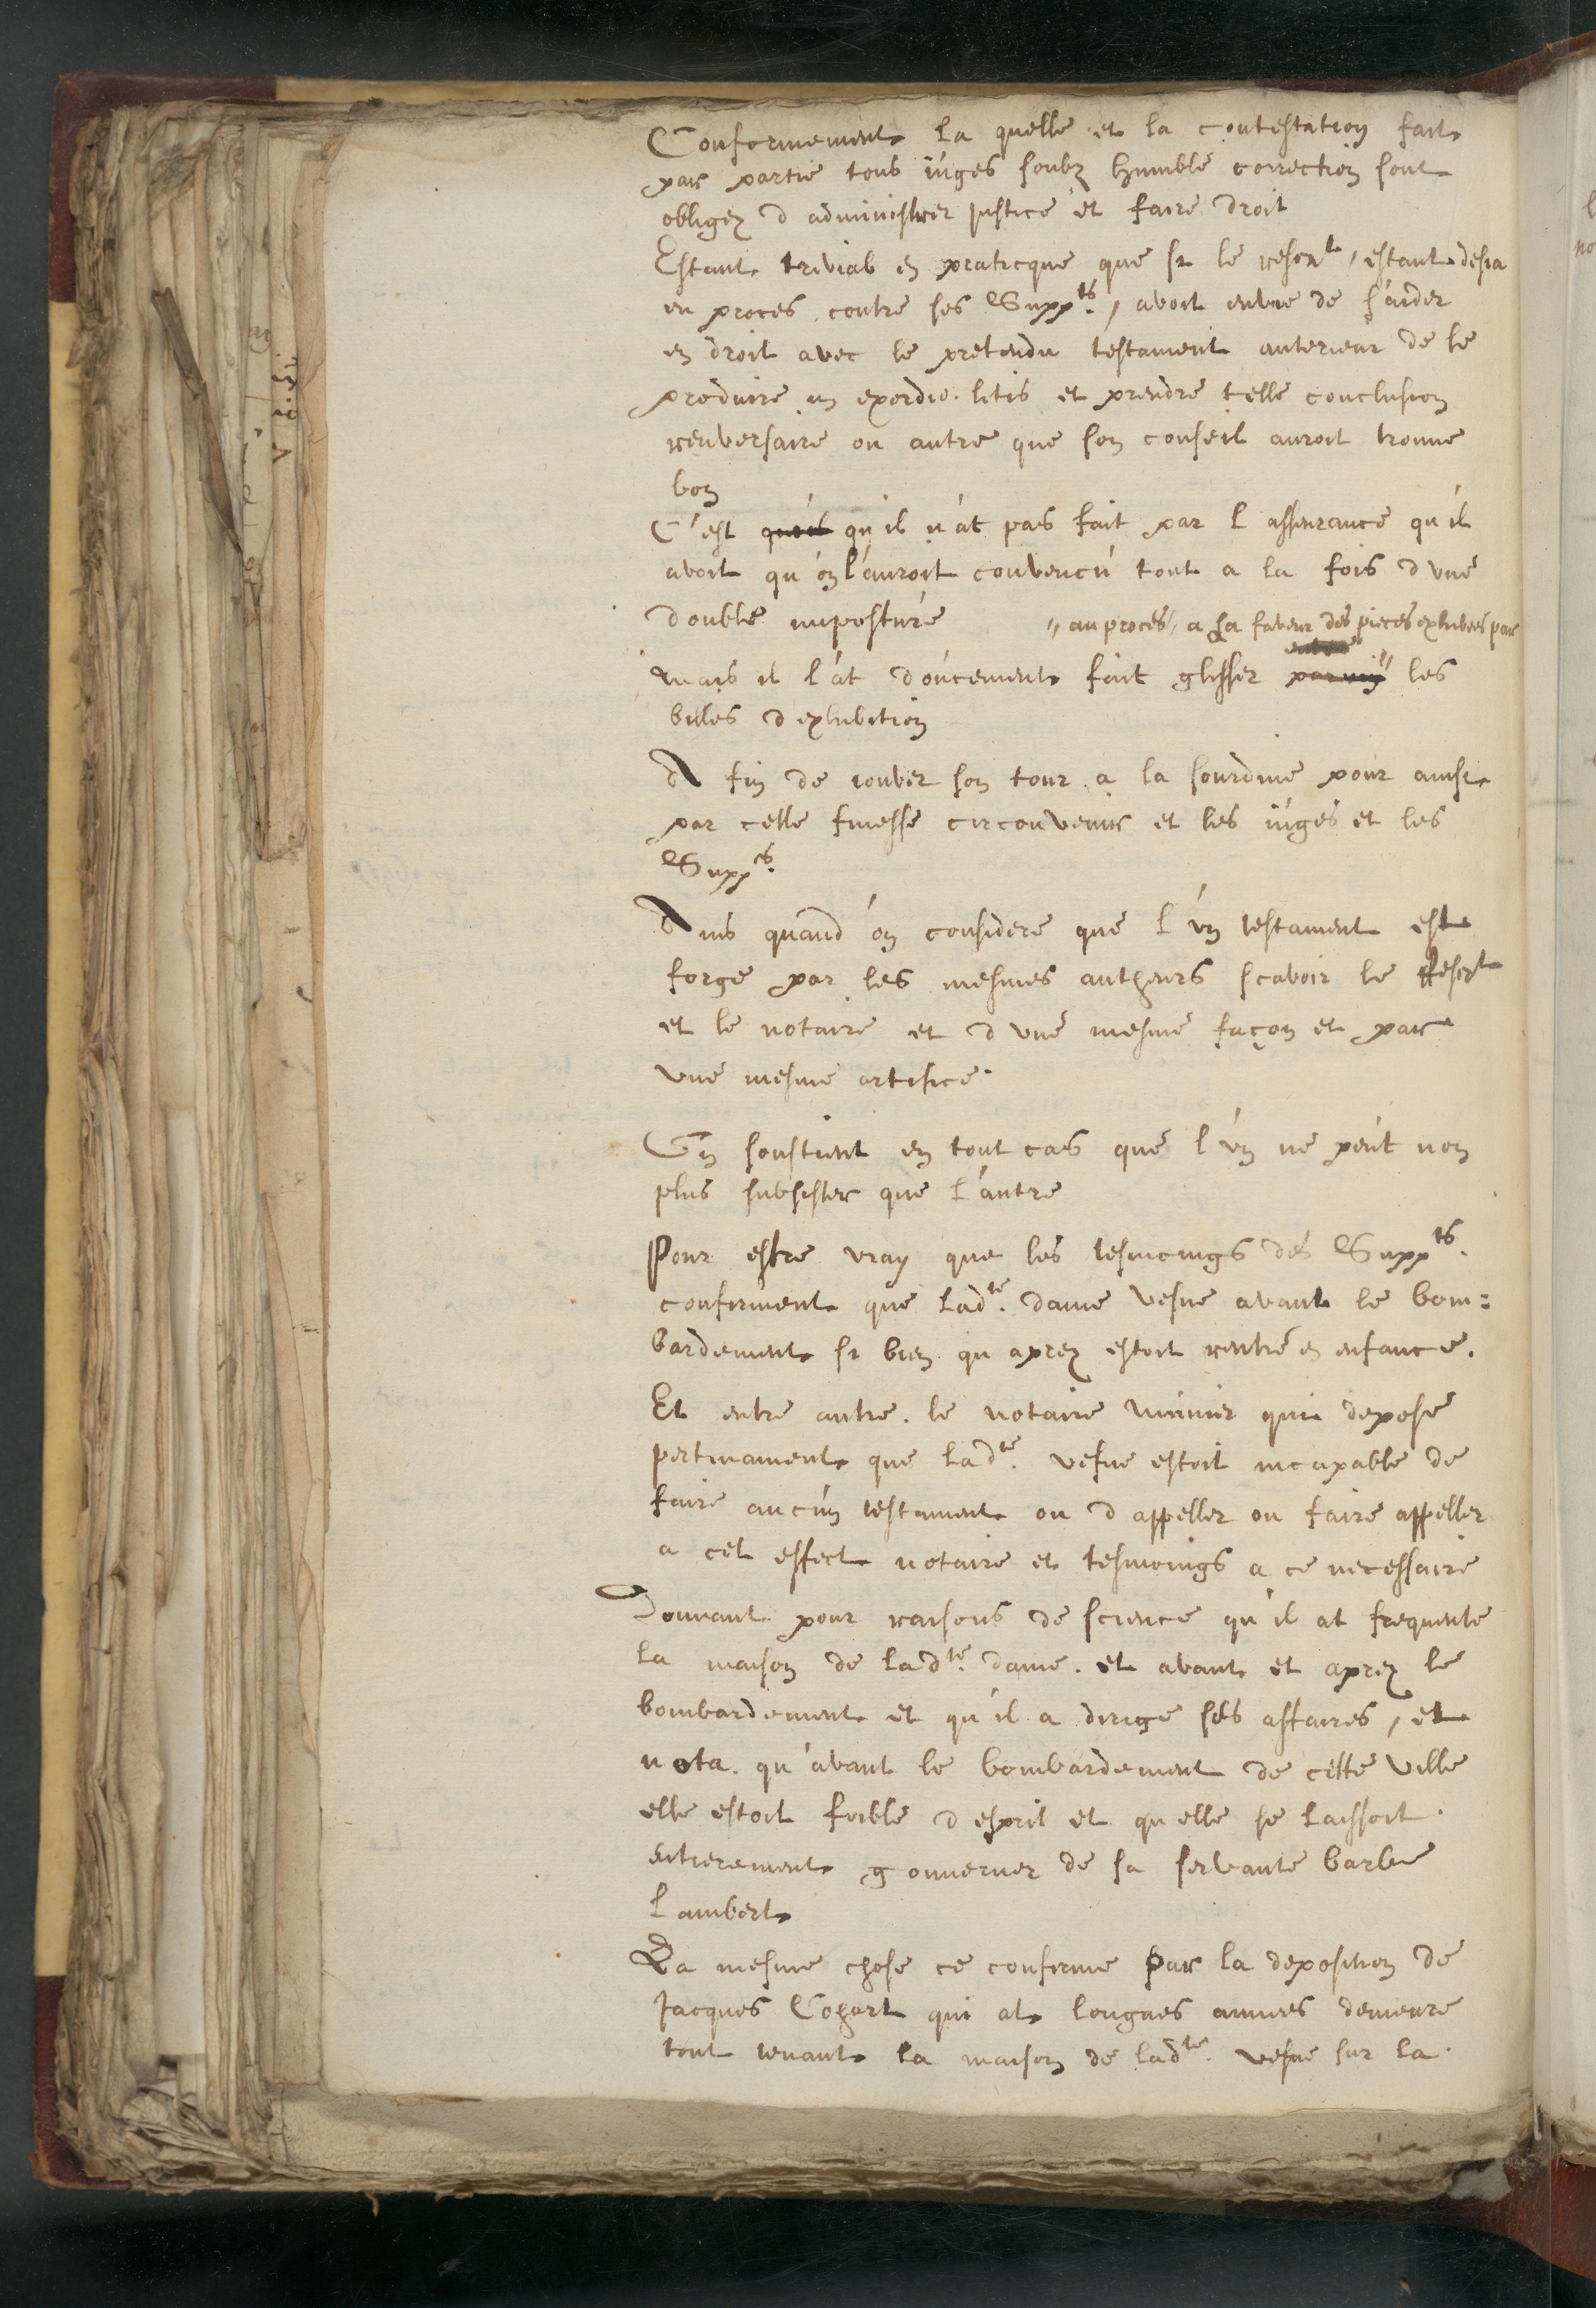 Conformement la quelle et la contestation fait
par partie tous iuges soubz humble correction sont
obligez d administrer justice et faire droit
Estant trivial en practicque que si le rescrt, estant desia
en proces contre ses Suppts, avoit envie de s'aider
en droit avec le pretendu testament anterieur de le
produire in exordio litis et prendre telle conclusion
renversaire ou autre que son conseil auroit trouve
bon
C'est qu'il n'at pas fait par l asseurance qu'il
avoit qu'on l'auroit convencu tout a la fois d une
double imposture
"au proces, a la faveur des pieces exhibees par
mais il l'at doucement fait glisser parmy les
billes d exhibition
A fin de iouver son tour a la sourdine pour ainsi
par celle finesse circonvenir et les iuges et les
Suppts.
Ains quand on considere que l'un testament est
forge par les mesmes autheurs scavoir le Rescrt
et le notaire et d une mesme façon et par
une mesme artifice.
On soustient en tout cas que l'un ne peut non
plus subsister que l'autre
Pour estre vray que les tesmoings des Suppts.
confirment que ladte. dame vesve avant le bom=
bardement si bien qu aprez estoit rentré en enfance.
Et entre autre le notaire qui depose
pertinament que ladte. vefue estoit incapable de
faire aucun testament ou d appeller ou faire appeller
a cet effect notaire et tesmoings a ce necessaire
Donnant pour raisons de science qu'il at frequente
la maison de ladte. dame et avant et aprez le
bombardement et qu'il a dirige ses affaires, et
nota qu'avant le bombardement de cette ville
elle estoit foible d esprit et qu elle se laissoit
entierement gouverner de sa servante barbe
Lambert
La mesme chose ce confirme par la deposition de
Jacques Cogart qui at longues annees demeure
tout tenant la maison de ladte. vesue sur la